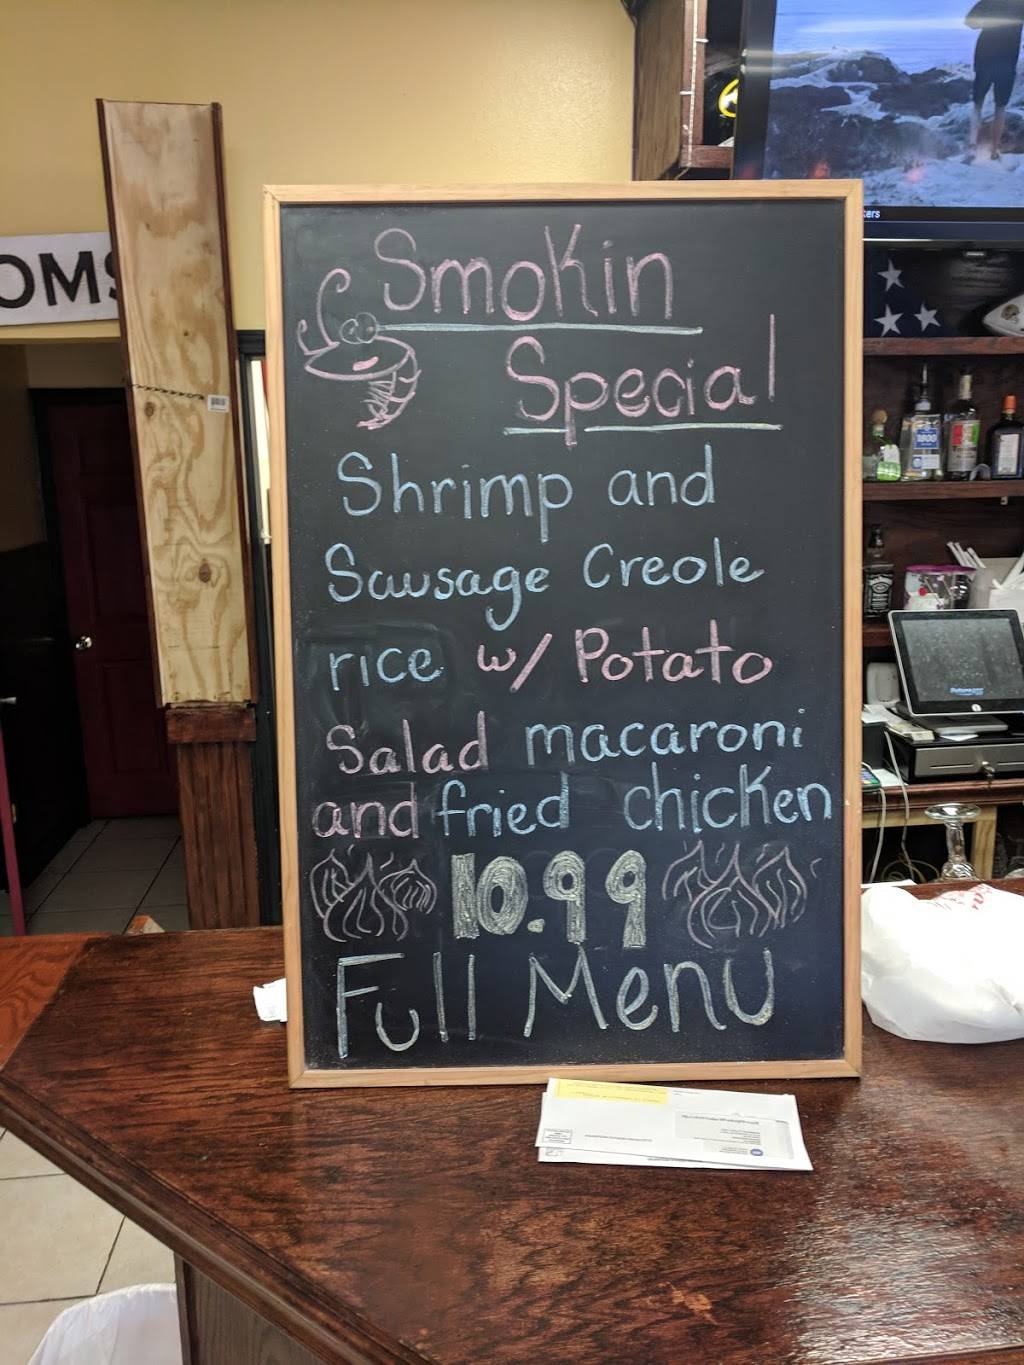 Smokin
Special
Shrimp and
Sausage Creole
rice w/ Potato
Salad macaroni
and fried chicken
10.99
Full Menu
OMS
kers
1800